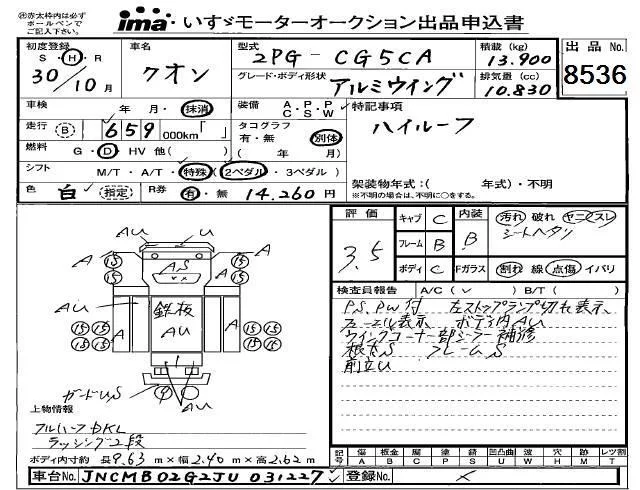 ㊟赤太枠内は必ずボールペンでご記入下さい。
ima・いすゞモーターオークション出品申込書
初度登録 S・H・R 30/10月
車名 クオン
型式 2PG-CG5CA
積載(kg) 13.900
出品No. 8536
グレード・ボディ形状 アルミウイング
排気量(cc) 10.830
車検 年 月・抹消
装備 A.P.P C S W
特記事項
ハイルーフ
走行(B) 659 000km「 」
タコグラフ 有・無 別体 ( 年 月)
燃料 G・D・HV 他( )
シフト M/T・A/T・特殊(2ペダル・3ペダル)
架装物年式:( 年式)・不明
※不明の場合は、不明に○をする。
色 白 指定
R券 有・無 14.260円
評価 3.5
キャブ C
内装 B
汚れ 破れ ヤニ スレ
シートヘタリ
フレーム B
ボディ C
Fガラス 割れ 線 点傷 イバリ
検査員報告 A/C( ✓ ) B/T( )
P.S, P.W付 左ストップランプ切れ表示
フューエル表示 ボデー内AU
ウイングコーナー部シーラー補修
根太S フレームS
前立U
AU U
A A
AS
⑮ ⑮
⑮ ⑮
AU 鉄板 AU
A A
⑮⑮ ⑮⑮
⑮⑮ ⑮⑮
ガードUS
AU
上物情報
フルハーフDKL
ラッシング2段
ボディ内寸約 長9.63m×巾2.40m×高2.62m
記号 傷 板金 腐 塗 錆 凹凸曲 波 穴 跡 レツ割
A B C P S U W H M T
車台No. JNCMB02G2JU031227
登録No.